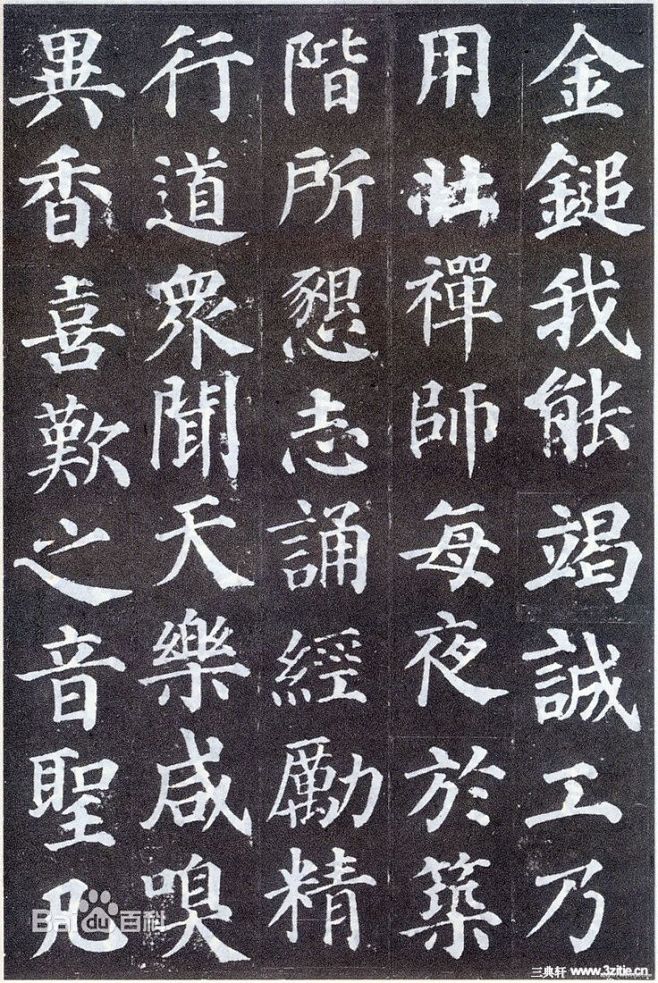 金鎚我能竭誠工乃
用壯禪師每夜於築
階所懇志誦經勵精
行道衆聞天樂咸嗅
異香喜歎之音聖凡
Baidu百科
三典轩 www.3zitie.cn